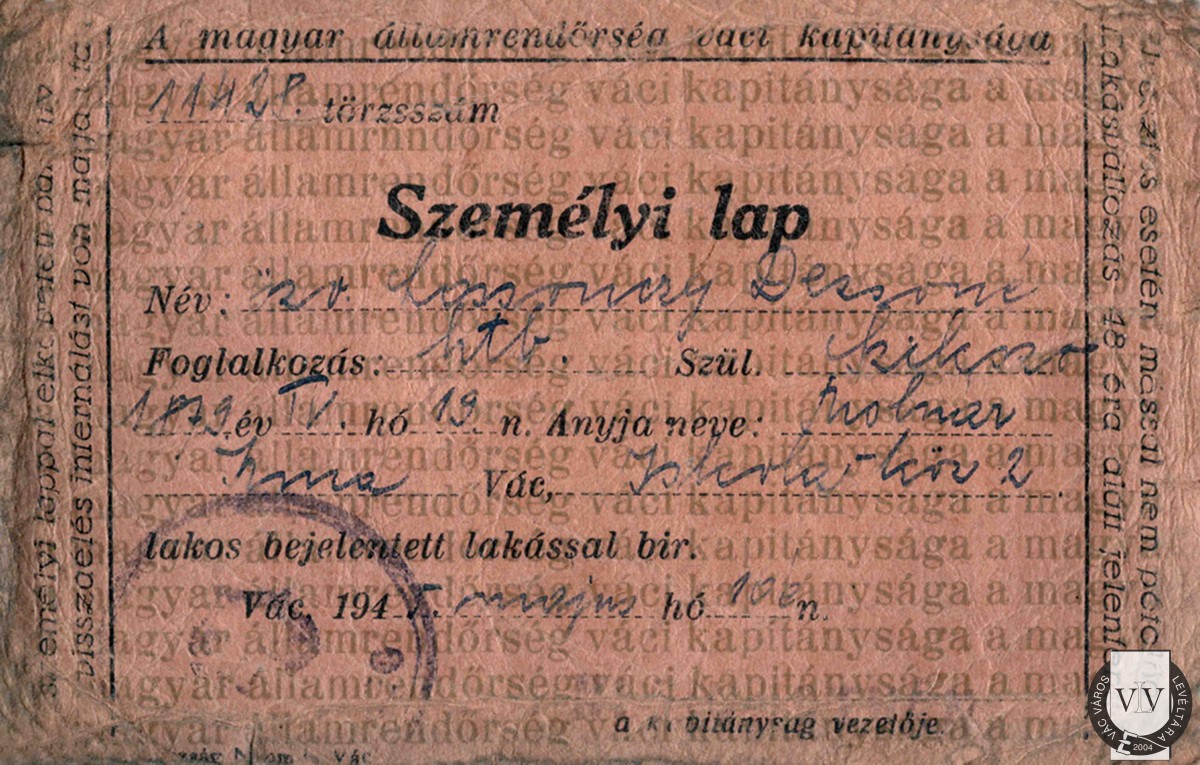 A magyar államrendőrség váci kapitánysága
11428. törzsszám
Személyi lap
Név: özv. Losonczy Dezsőné
Foglalkozás: htb. Szül. Szikszó
1879 év IV. hó 19 n. Anyja neve: Molnár
Irma Vác, Iskola-köz 2.
lakos bejelentett lakással bir.
Vác, 1945. május hó 10 n.
a kapitányság vezetője.
esetén mással nem pótol
Lakásváltozás 48 óra alatt jelente
személyi lappal elkövetett
visszaélés internálást von maga után
Vác
VÁC VÁROS LEVÉLTÁRA
VLV
2004